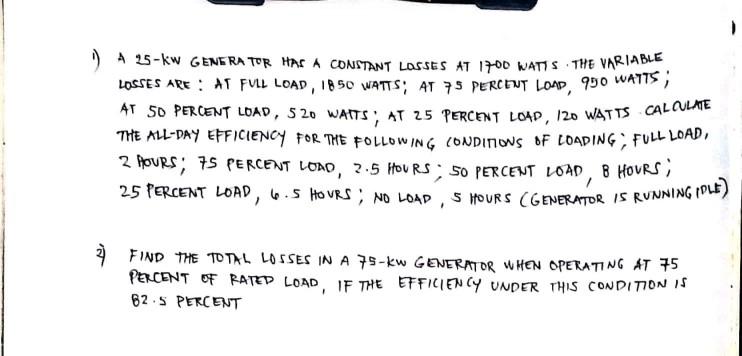 1) A 25-KW GENERATOR HAS A CONSTANT LOSSES AT 1700 WATTS. THE VARIABLE
LOSSES ARE: AT FULL LOAD, 1850 WATTS; AT 75 PERCENT LOAD, 990 WATTS;
AT 50 PERCENT LOAD, 520 WATTS; AT 25 PERCENT LOAD, 120 WATTS. CALCULATE
THE ALL-DAY EFFICIENCY FOR THE FOLLOWING CONDITIONS OF LOADING; FULL LOAD,
2 HOURS; 75 PERCENT LOAD, 2.5 HOURS; 50 PERCENT LOAD, 8 HOURS;
25 PERCENT LOAD, 6.5 HOURS; NO LOAD, 5 HOURS (GENERATOR IS RUNNING IDLE)
2) FIND THE TOTAL LOSSES IN A 75-KW GENERATOR WHEN OPERATING AT 75
PERCENT OF RATED LOAD, IF THE EFFICIENCY UNDER THIS CONDITION IS
82.5 PERCENT